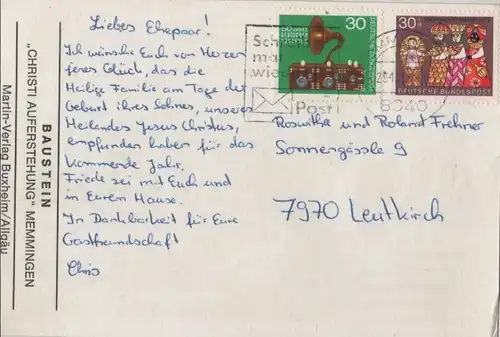 Liebes Ehepaar!
Ich wünsche Euch von Herzen
jenes Glück, das die
Heilige Familie am Tage der
Geburt ihres Sohnes, unseres
Heilandes Jesus Christus,
empfunden haben für das
kommende Jahr.
Friede sei mit Euch und
in Eurem Hause.
In Dankbarkeit für Eure
Gastfreundschaft
Chris
BAUSTEIN
„CHRISTI AUFERSTEHUNG" MEMMINGEN
Martin-Verlag Buxheim/Allgäu
30
DEUTSCHE BUNDESPOST
30
DEUTSCHE BUNDESPOST
Schreib
mal
wieder
Post!
Roswitha und Roland Frehner
Sonnengässle 9
7970 Leutkirch